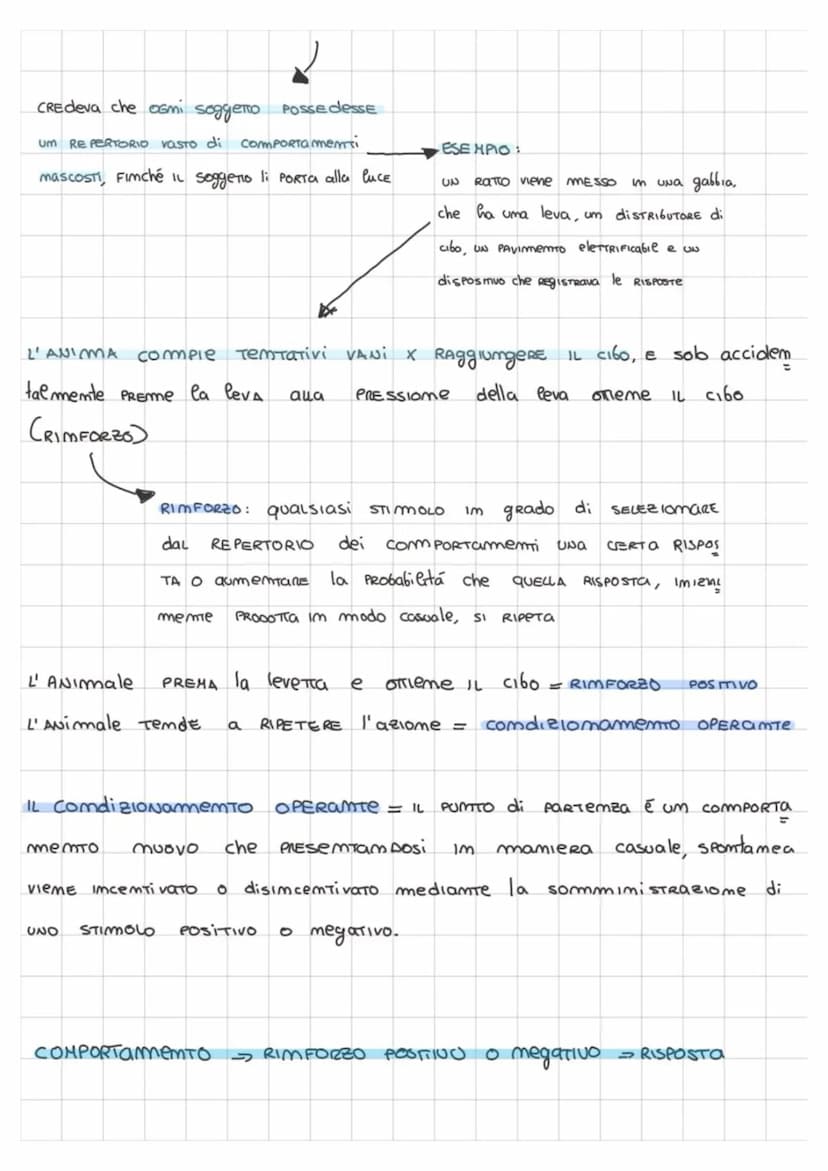 CREdeva che ogni soggetto possedesse
un repertorio vasto di comportamenti
nascosti, finché il soggetto li porta alla luce
ESEMPIO:
un ratto viene messo in una gabbia,
che ha una leva, un distributore di
cibo, un pavimento elettrificabile e un
dispositivo che registrava le risposte
L'ANIMA compie tentativi vani x raggiungere il cibo, e solo acciden
talmente preme la leva alla pressione della leva ottiene il cibo
(RINFORZO)
RINFORZO: qualsiasi stimolo in grado di selezionare
dal repertorio dei comportamenti una certa rispos
ta o aumentare la probabilitá che quella risposta, inizial
mente prodotta in modo casuale, si ripeta
L'animale prema la levetta e ottiene il cibo = RINFORZO POSITIVO
L'animale tende a ripetere l'azione = condizionamento operante
Il condizionamento operante = il punto di partenza é un comporta
mento nuovo che presentandosi in maniera casuale, spontanea
viene incentivato o disincentivato mediante la somministrazione di
uno stimolo positivo o negativo.
COMPORTAMENTO → RINFORZO POSITIVO o negativo → RISPOSTA